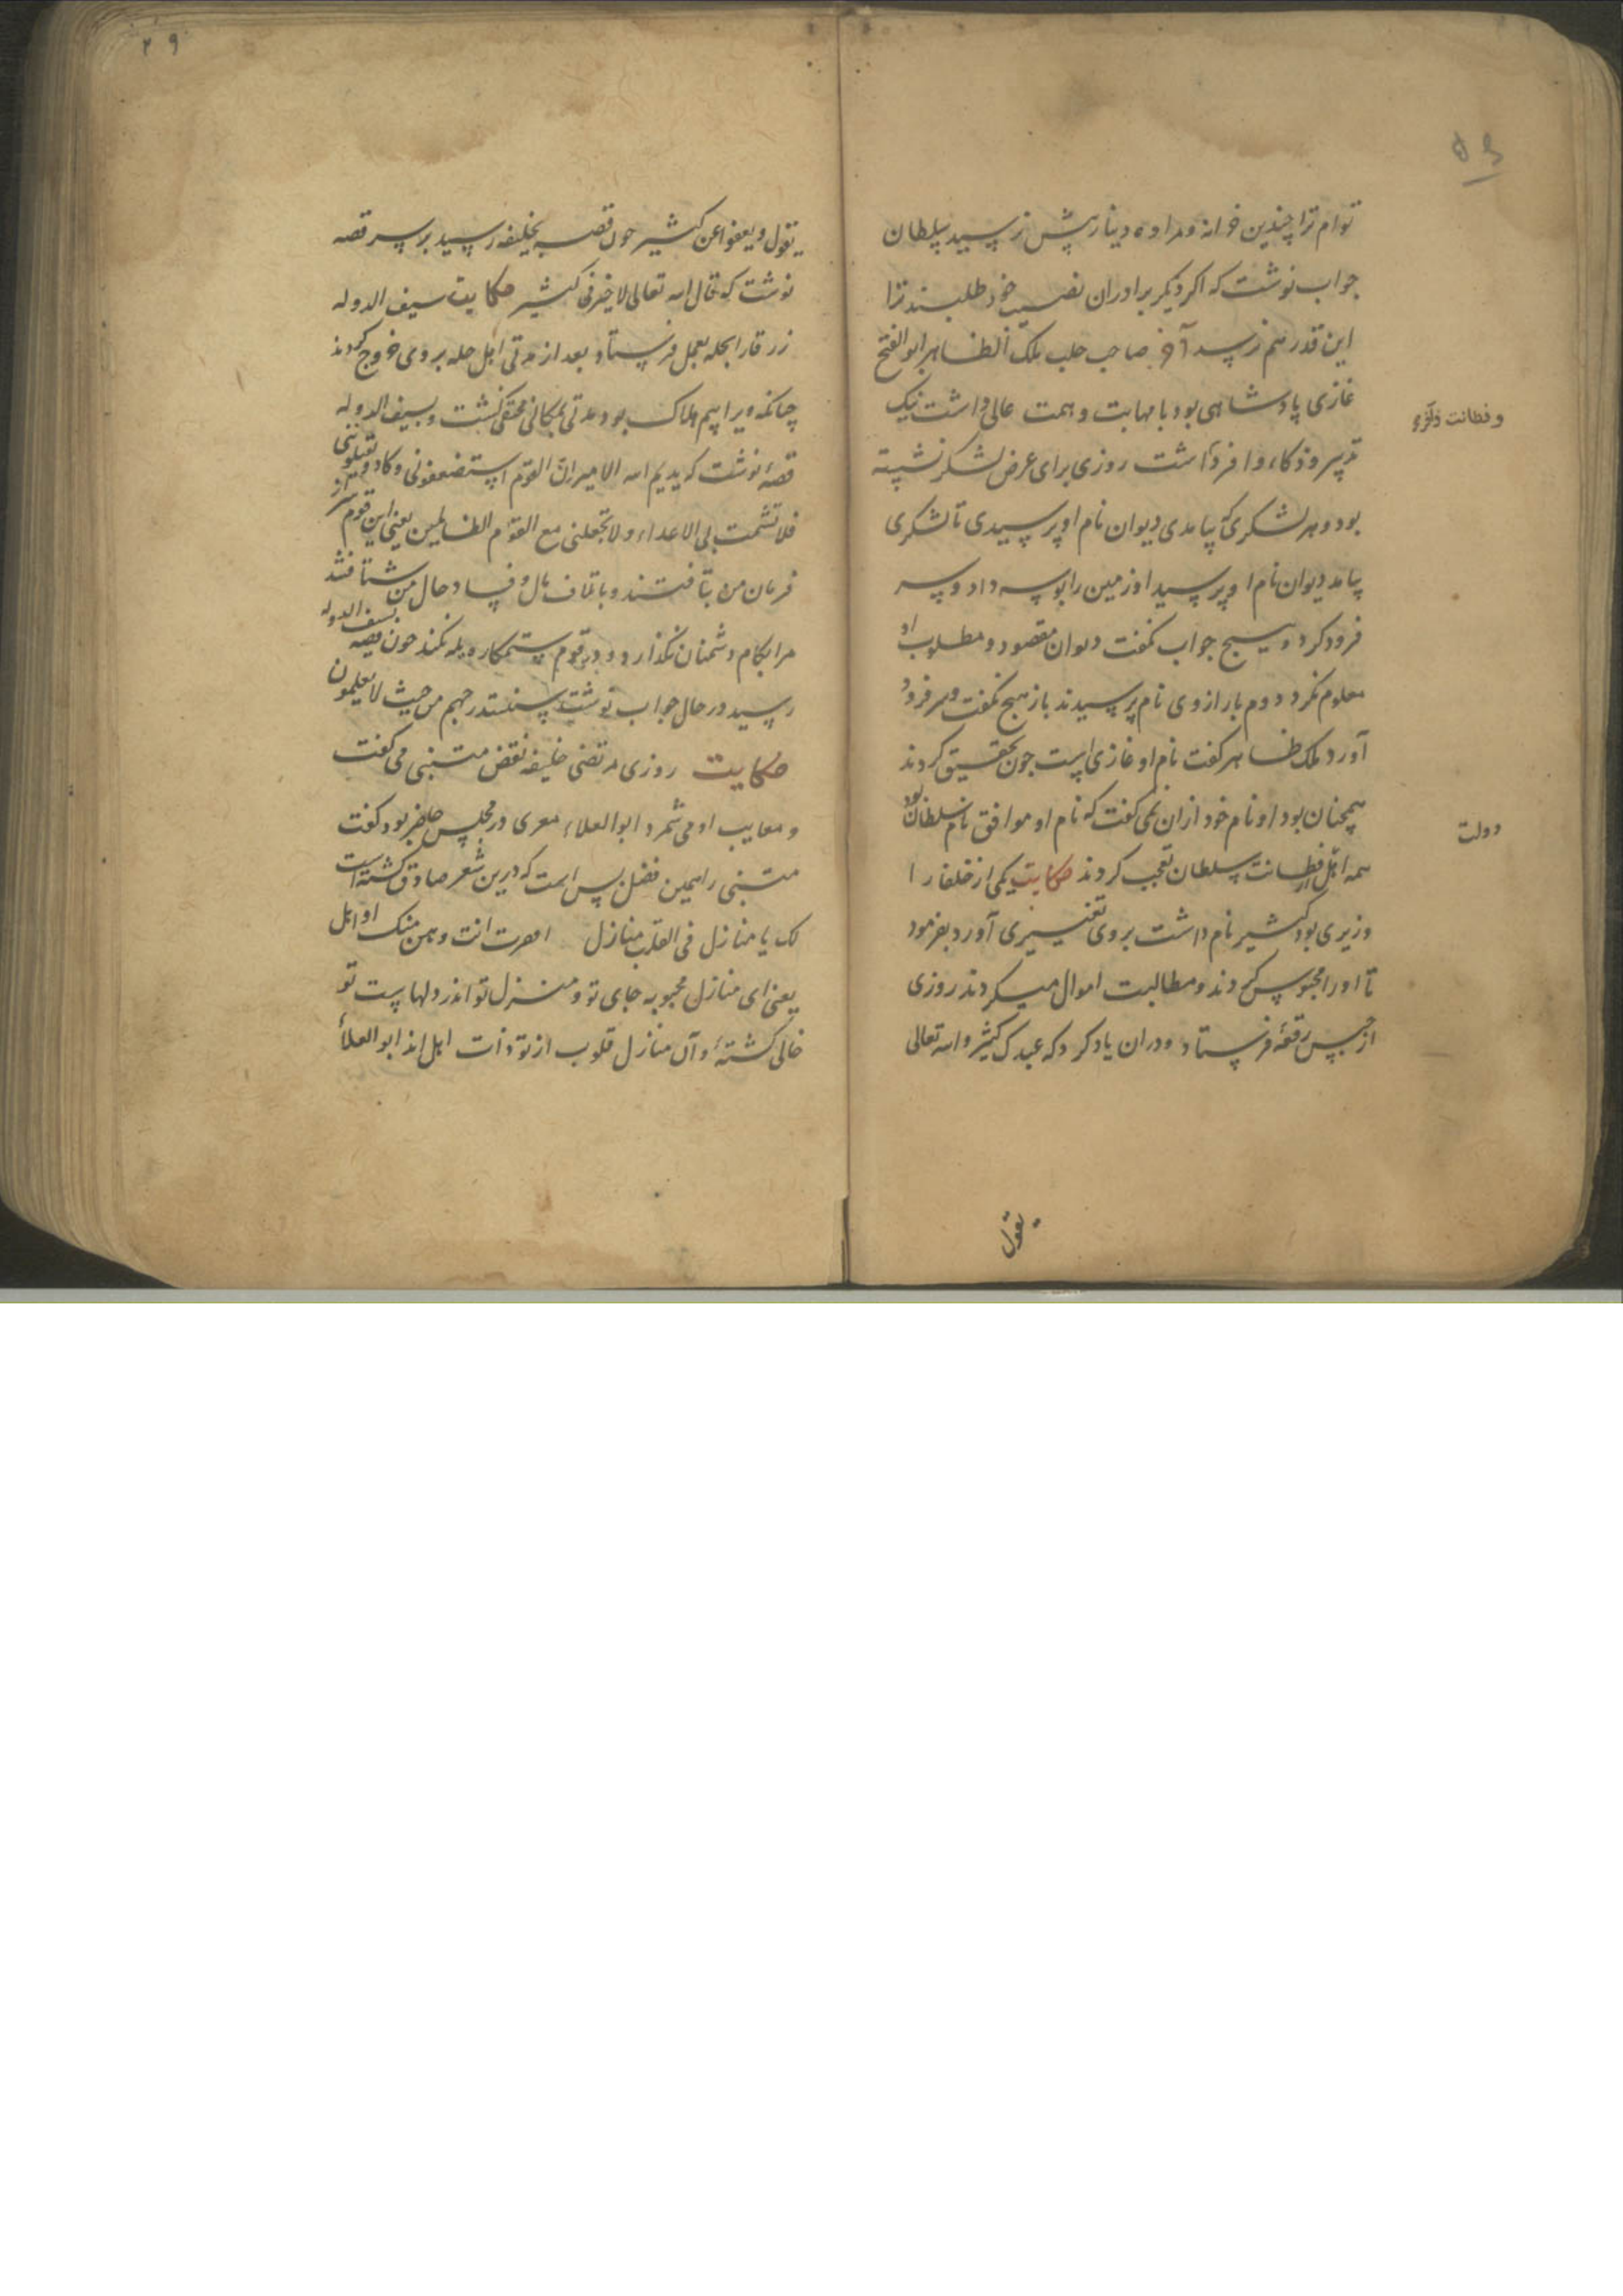 توام ترا چندین خزانه و مرا ده دینار پیش نرسید سلطان
جواب نوشت که اکر دیکر برادران نصیب خود طلبند ترا
این قدر هم نرسد آخر صاحب حلب ملک الظاهر ابو الفتح
غازی پادشاهی بود با مهابت و همت عالی داشت نیک
تدبیر و ذکاء وافر داشت روزی برای عرض لشکر نشسته
بود و هر لشکری که بیامدی دیوان نام او پرسیدی تا لشکری
بیامد دیوان نام او پرسید او زمین را بوسه داد و سر
فرود کرد و هیچ جواب نکفت دیوان مقصود و مطلوب او
معلوم نکرد دوم بار از وی نام پرسیدند باز هیچ نکفت و سر فرود
آورد ملک ظاهر کفت نام او غازی است چون تحقیق کردند
همچنان بود او نام خود ازان نمی کفت که نام او موافق نام سلطان بود
همه اهل از فطانت سلطان تعجب کردند حکایت یکی از خلفا را
وزیری بود کثیر نام داشت بر وی تغییری آورد بفرمود
تا او را محبوس کردند و مطالبت اموال میکردند روزی
از حبس رقعهٔ فرستاد و دران یاد کرد که عبدک کثیر و الله تعالی
و فطانت
دولت
یقول
۲۹
یقول و یعفوا عن کثیر چون قصه بخلیفه رسید بر سر قصه
نوشت که قال الله تعالی لا خیر فی کثیر حکایت سیف الدوله
زرقا را بحله بعمل فرستاد بعد از مدتی اهل حله بر وی خروج کردند
چنانکه ویرا بیم هلاک بود مدتی بمکانی مختفی کشت و بسیف الدوله
قصهٔ نوشت که یدیم الله الامیر ان القوم استضعفونی و کادوا یقتلوننی
فلا تشمت بی الاعداء و لا تجعلنی مع القوم الظالمین یعنی این قوم سر از
فرمان من بتافتند و باتلاف مال و فساد حال من شتافتند
مرا بکام دشمنان نکذارد و در قوم ستمکاره یله نکند چون قصه بسیف الدوله
رسید در حال جواب نوشت سنستدرجهم من حیث لا یعلمون
حکایت روزی مرتضی خلیفه نقض متنبی می کفت
و معایب او می شمرد ابو العلاء معری در مجلس حاضر بود کفت
متنبی را همین فضل بس است که درین شعر صادق کشته است
لک یا منازل فی القلب منازل اقفرت انت و هن منک اواهل
یعنی ای منازل محبوبه جای تو و منزل تو اندر دلهاست تو
خالی کشتهٔ و آن منازل قلوب از تو ذات اهل اند ابو العلأ